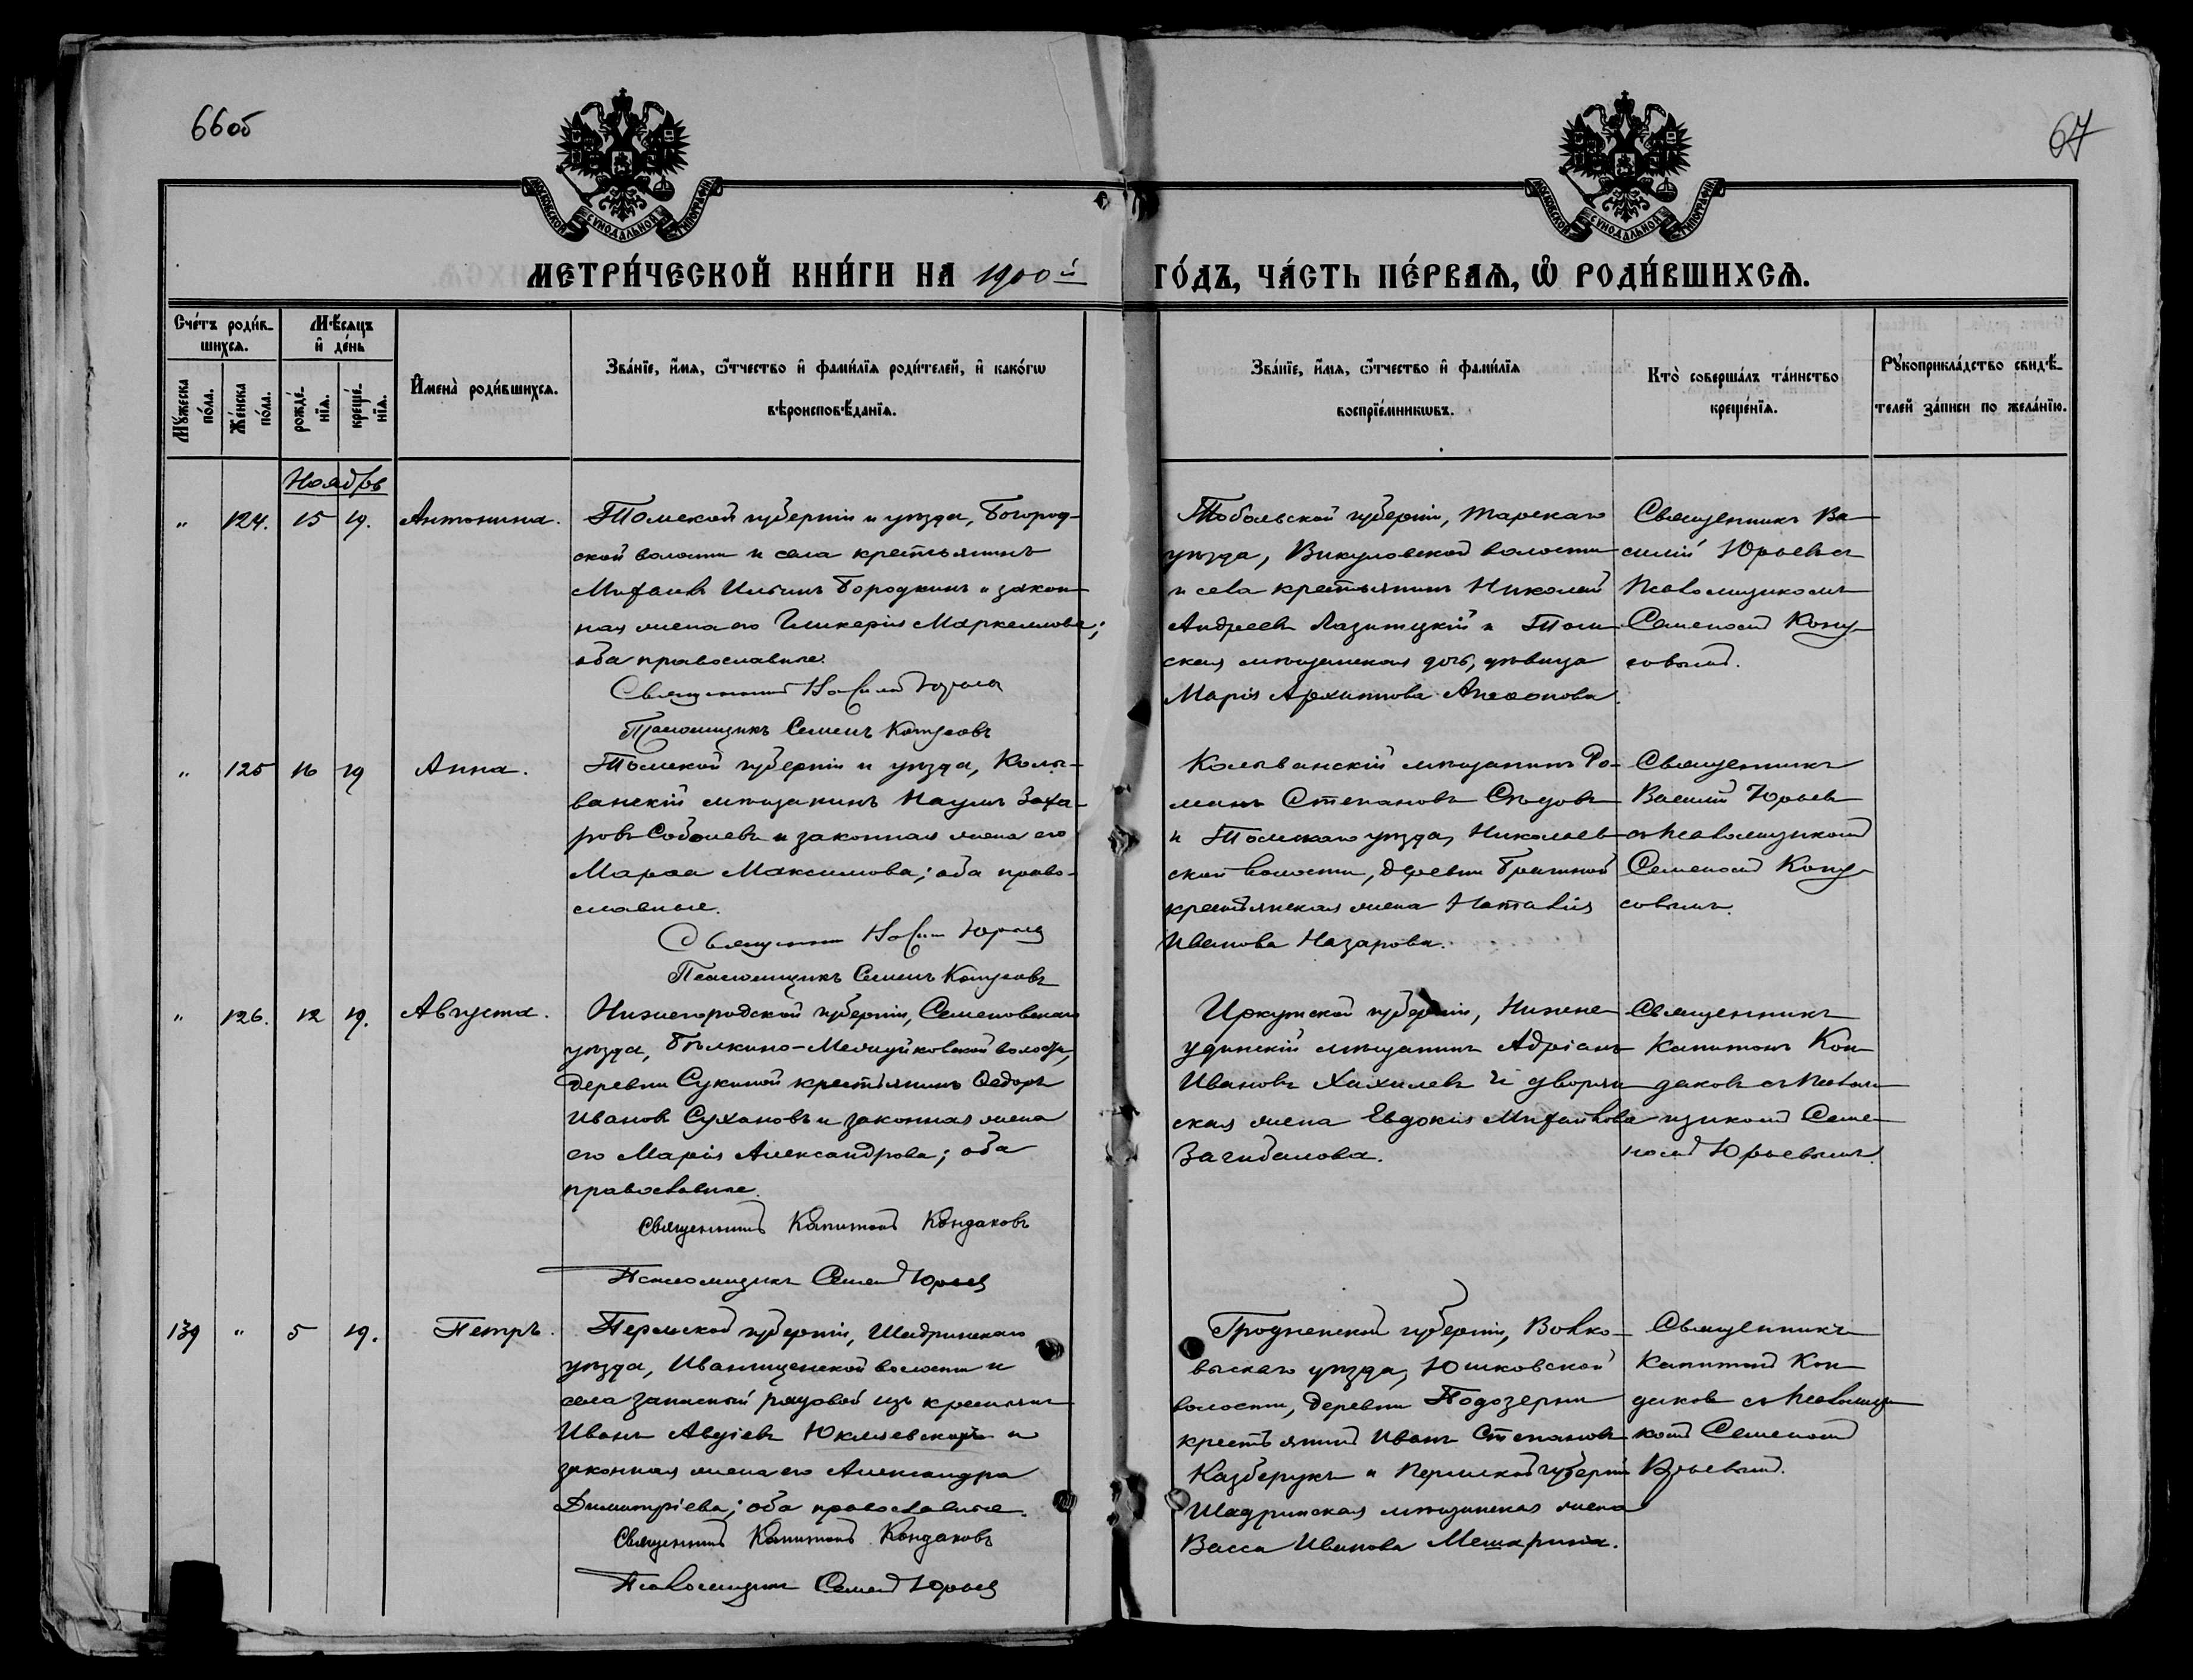 66об
67
МОСКОВСКОЙ СУНОДАЛЬНОЙ ТИПОГРАФІИ
МОСКОВСКОЙ СУНОДАЛЬНОЙ ТИПОГРАФІИ
МЕТРИ́ЧЕСКОЙ КНИ́ГИ НА 1900й ГО́ДЪ, ЧА́СТЬ ПЕ́РВАѦ, Ѿ РОДИ́ВШИХСѦ.
Сче́тъ роди́в-
шихсѧ.
Мꙋжеска по́ла.
Же́нска по́ла.
Мѣ́сяцъ
и де́нь
рожде́-
нїѧ.
креще́-
нїѧ.
Имена̀ роди́вшихсѧ.
Зва́нїе, и́мѧ, ѻ́тчество и фами́лїѧ роди́телей, и како́гѡ
вѣроисповѣ́данїѧ.
Зва́нїе, и́мѧ, ѻ́тчество и фами́лїѧ
воспрїе́мникѡвъ.
Кто̀ соверша́лъ та́инство
креще́нїѧ.
Рꙋкоприкла́дство свидѣ́-
телей за́писи по жела́нїю.
Ноябрь
" 124. 15 19. Антонина.
Томской губерніи и уѣзда, Богород-
ской волости и села крестьянинъ
Михаилъ Ильинъ Бородкинъ и закон-
ная жена его Гликерія Маркеллова;
оба православные.
Священникъ Василій Юрьевъ
Псаломщикъ Семенъ Копусовъ
Тобольской губерніи, Тарскаго
уѣзда, Викуловской волости
и села крестьянинъ Николай
Андреевъ Лазитцкій и Том-
ская мѣщанская дочь, дѣвица
Марія Архиппова
Священникъ Ва-
силій Юрьевъ съ
псаломщикомъ
Семеномъ Копу-
совымъ.
" 125 16 19 Анна.
Томской губерніи и уѣзда, Колы-
ванскій мѣщанинъ Наумъ Заха-
ровъ Соболевъ и законная жена его
Марѳа Максимова; оба право-
славные.
Священникъ Василій Юрьевъ
Псаломщикъ Семенъ Копусовъ
Колыванскій мѣщанинъ Ро-
манъ Степановъ Сѣдовъ
и Томскаго уѣзда, Николаев-
ской волости, деревни
крестьянская жена Наталія
Иванова Назарова.
Священникъ
Василій Юрьевъ
съ псаломщикомъ
Семеномъ Копу-
совымъ.
" 126. 12 19. Августа.
Нижегородской губерніи, Семеновскаго
уѣзда, волости,
деревни Сукиной крестьянинъ Ѳедоръ
Ивановъ Сухановъ и законная жена
его Марія Александрова; оба
православные.
Священникъ Капитонъ Кондаковъ
Псаломщикъ Семенъ Юрьевъ
Иркутской губерніи, Нижне-
удинскій мѣщанинъ Адріанъ
Ивановъ Хахилевъ и дворян-
ская жена Евдокія Михайлова
Загибалова.
Священникъ
Капитонъ Кон-
даковъ съ псалом-
щикомъ Семе-
номъ Юрьевымъ.
139 " 5 19. Петръ.
Пермской губерніи, Шадринскаго
уѣзда, Иванищенской волости и
села запасный рядовой изъ крестьянъ
Иванъ Авдіевъ и
законная жена его Александра
Димитріева; оба православные.
Священникъ Капитонъ Кондаковъ
Псаломщикъ Семенъ Юрьевъ
Гродненской губерніи, Волко-
выскаго уѣзда, Юшковской
волости, деревни Подозерни
крестьянинъ Иванъ Степановъ
Казберукъ и Пермской губерніи
Шадринская мѣщанская жена
Васса Иванова
Священникъ
Капитонъ Кон-
даковъ съ псаломщи-
комъ Семеномъ
Юрьевымъ.